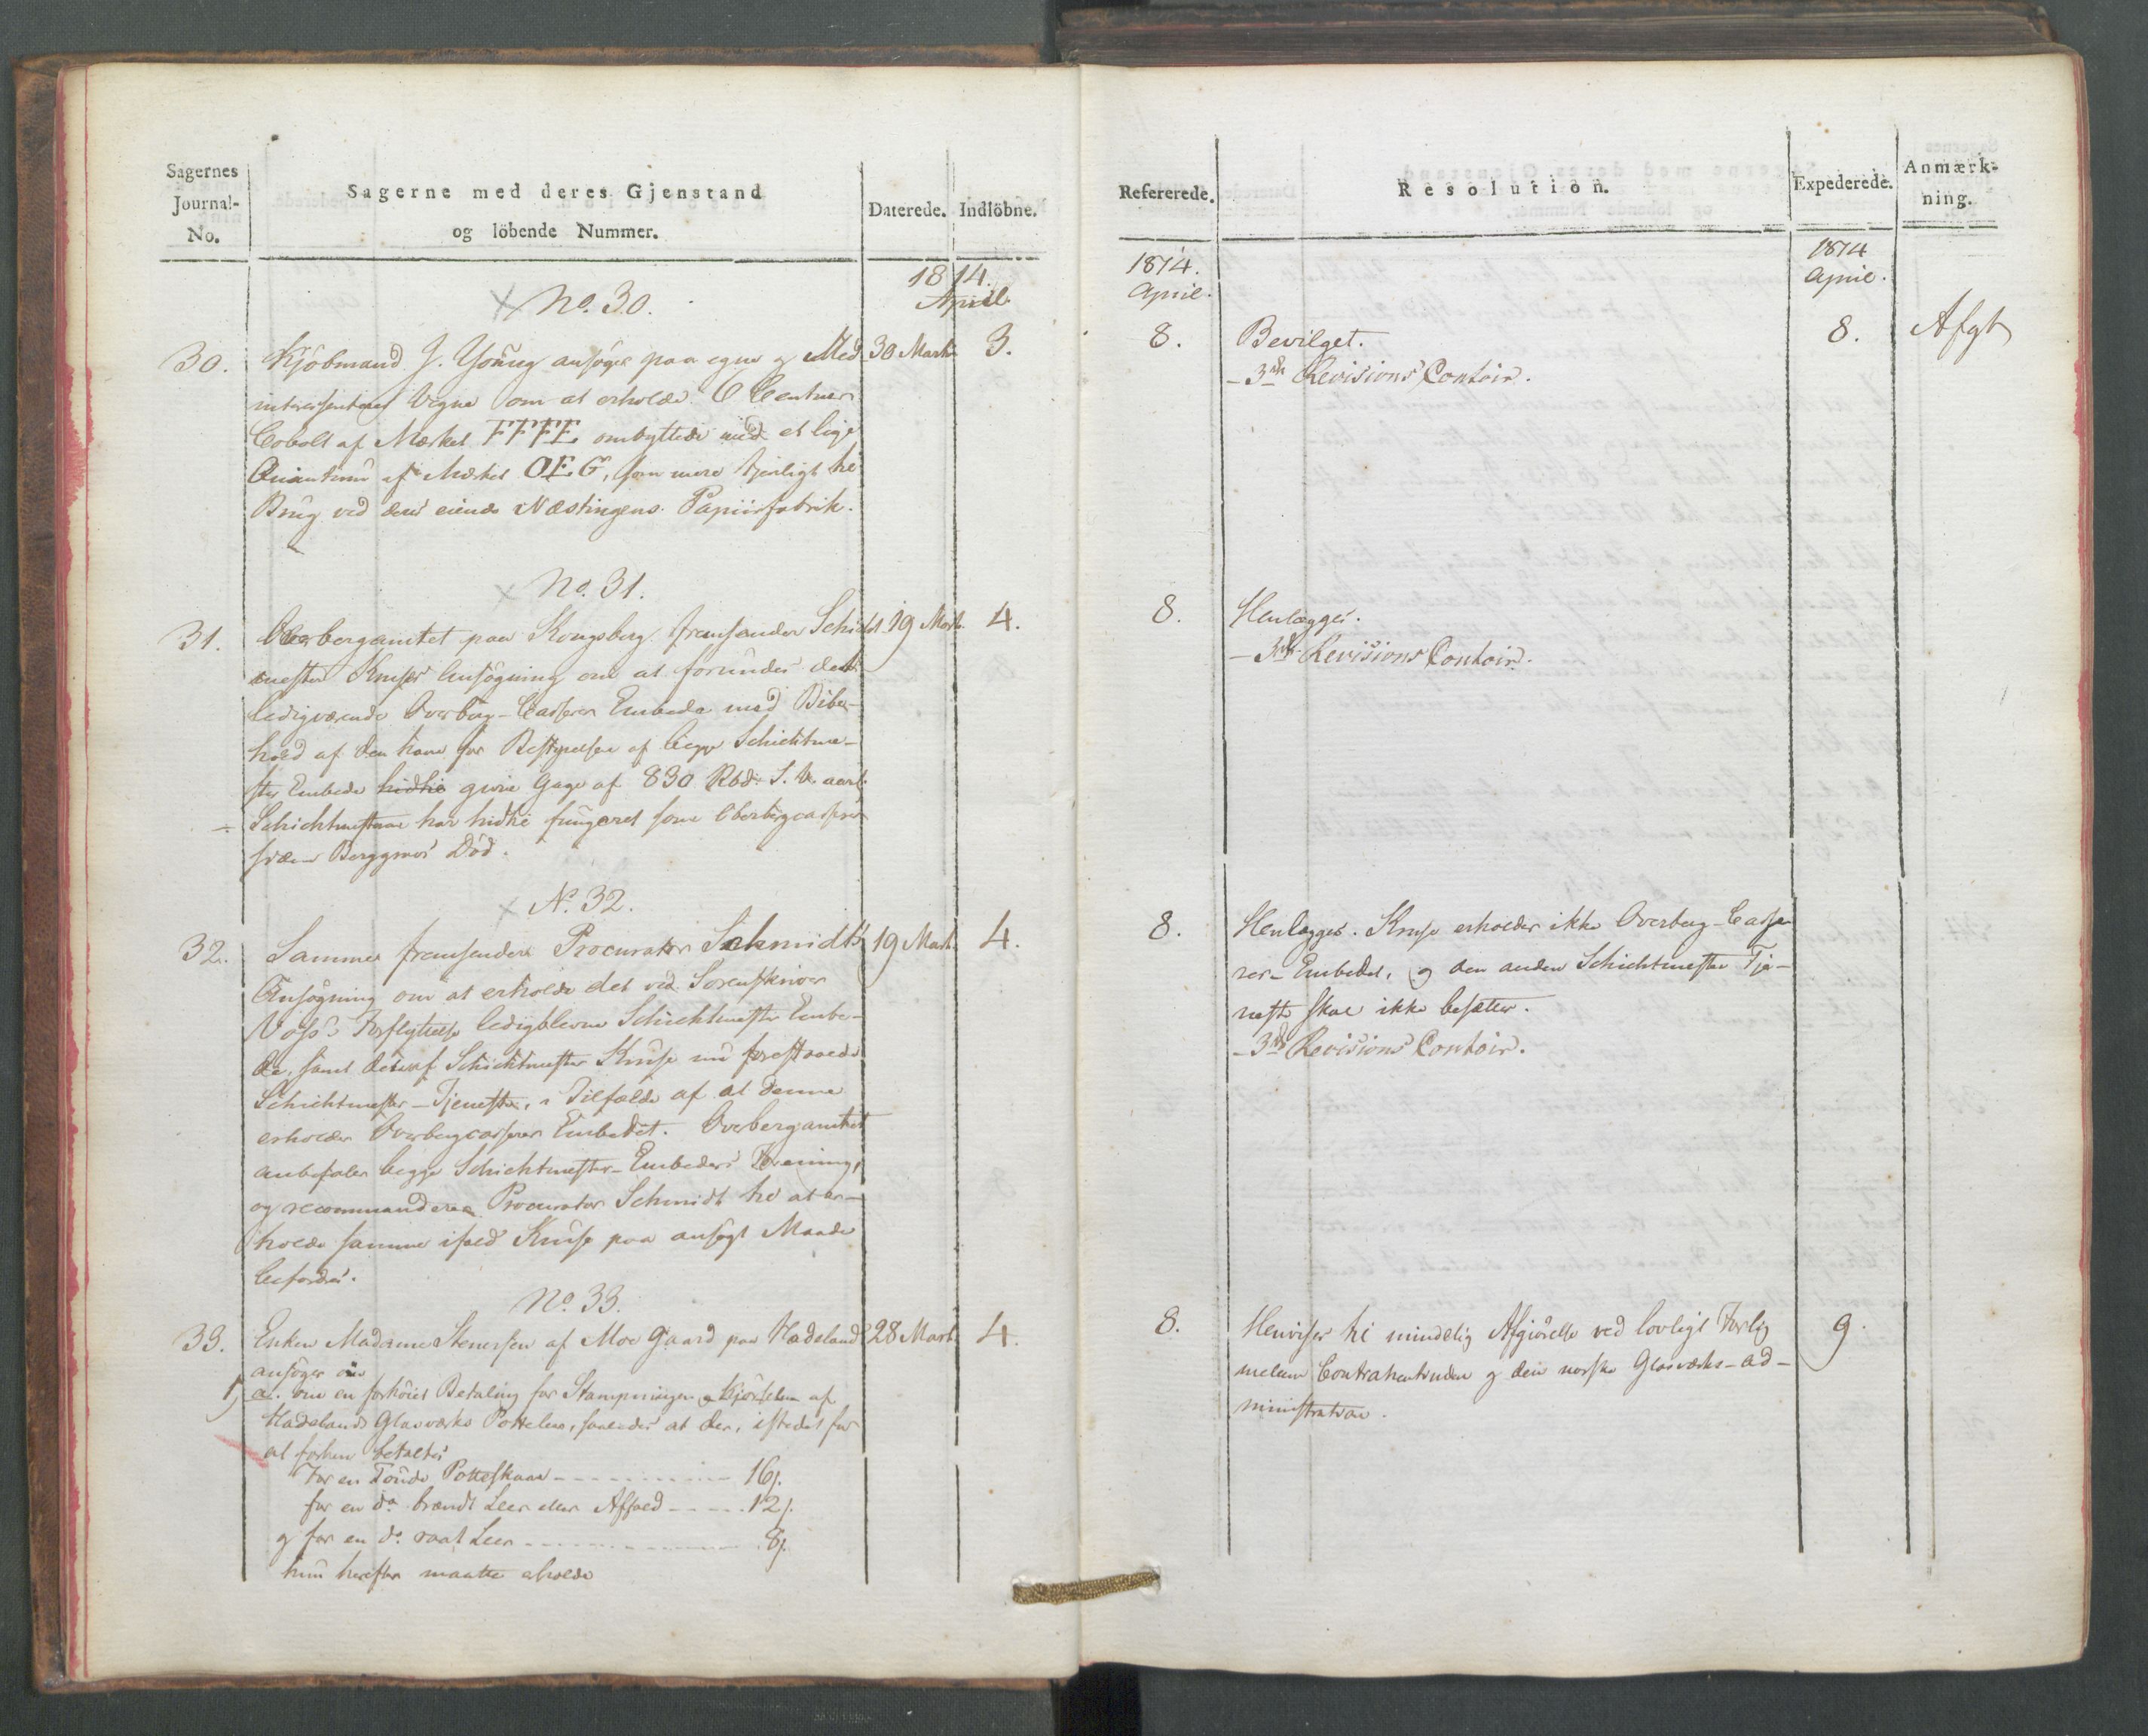 Sagernes
Journal-
No.
Sagerne med deres Gjenstand
og löbende Nummer.
Daterede.
Indlöbne.
1814.
April.
No. 30.
30.
Kjöbmand J. Young ansöger paa egne og Med
30 Marts
3.
interessenters Vegne om at erholde 6 Centner
Cobolt af Mærket FFFE ombyttede med et lige
Quantum af Mærket OEG, som mere tjenligt til
Brug ved den eiende Næstingens Papiirfabrik.
No. 31.
31.
Oberbergamtet paa Kongsberg fremsender Schicht
19 Marts
4.
mester Kruses Ansögning om at forundes det
ledigværende Overberg-Casserer Embede med Bibe-
hold af den ham for Bestyrelsen af begge Schichtme-
ster Embeder hidtil givne Gage af 830 Rbd. S. V. aarl.
Schichtmesteren har hidtil fungeret som Oberbergcasserer
siden Berggrens Död.
No. 32.
32.
Samme fremsender Procurator Schmidts
19 Marts
4.
Ansögning om at erholde det ved Sorenskriver
Voss's Forflyttelse ledigblevne Schichtmester Embe-
de, samt det af Schichtmester Kruse nu forestaaede
Schichtmester-Tjeneste, i Tilfælde af at denne
erholder Overbergcasserer Embedet. Overbergamtet
anbefaler begge Schichtmester-Embeders Forening,
og recommanderer Procurator Schmidt til at er-
holde samme ifald Kruse paa ansögt Maade
befordres.
No. 33.
33.
Enken Madame Stenersen af Moe Gaard paa Hadeland
28 Marts
4.
ansöger om
a. om en forhöiet Betaling for Stampningen og Kjörselen af
Hadelands Glasværks Potteleer, saaledes at der, istedet for
at forhen betaltes
For en Tönde Potteskaar - - - 16 ſ.
for en do. brændt Leer eller Affald - - - 12 ſ.
og for en do. raat Leer - - - 8 ſ.
hun herefter maatte erholde
Refererede.
Resolution.
Expederede.
Anmærk-
ning.
1814.
April.
1814
April.
8.
Bevilget.
8.
Afgt
- 3die Revisions Contoir.
8.
Henlægges.
- 3die Revisions Contoir.
8.
Henlægges. Kruse erholder ikke Overberg-Casse
rer-Embedet, og den anden Schichtmester Tje-
neste skal ikke besættes.
- 3die Revisions Contoir.
8.
Henvises til mindelig Afgiörelse ved lovligt Forlig
9.
mellem Contrahentinden og den norske Glasværks-Ad-
ministration.